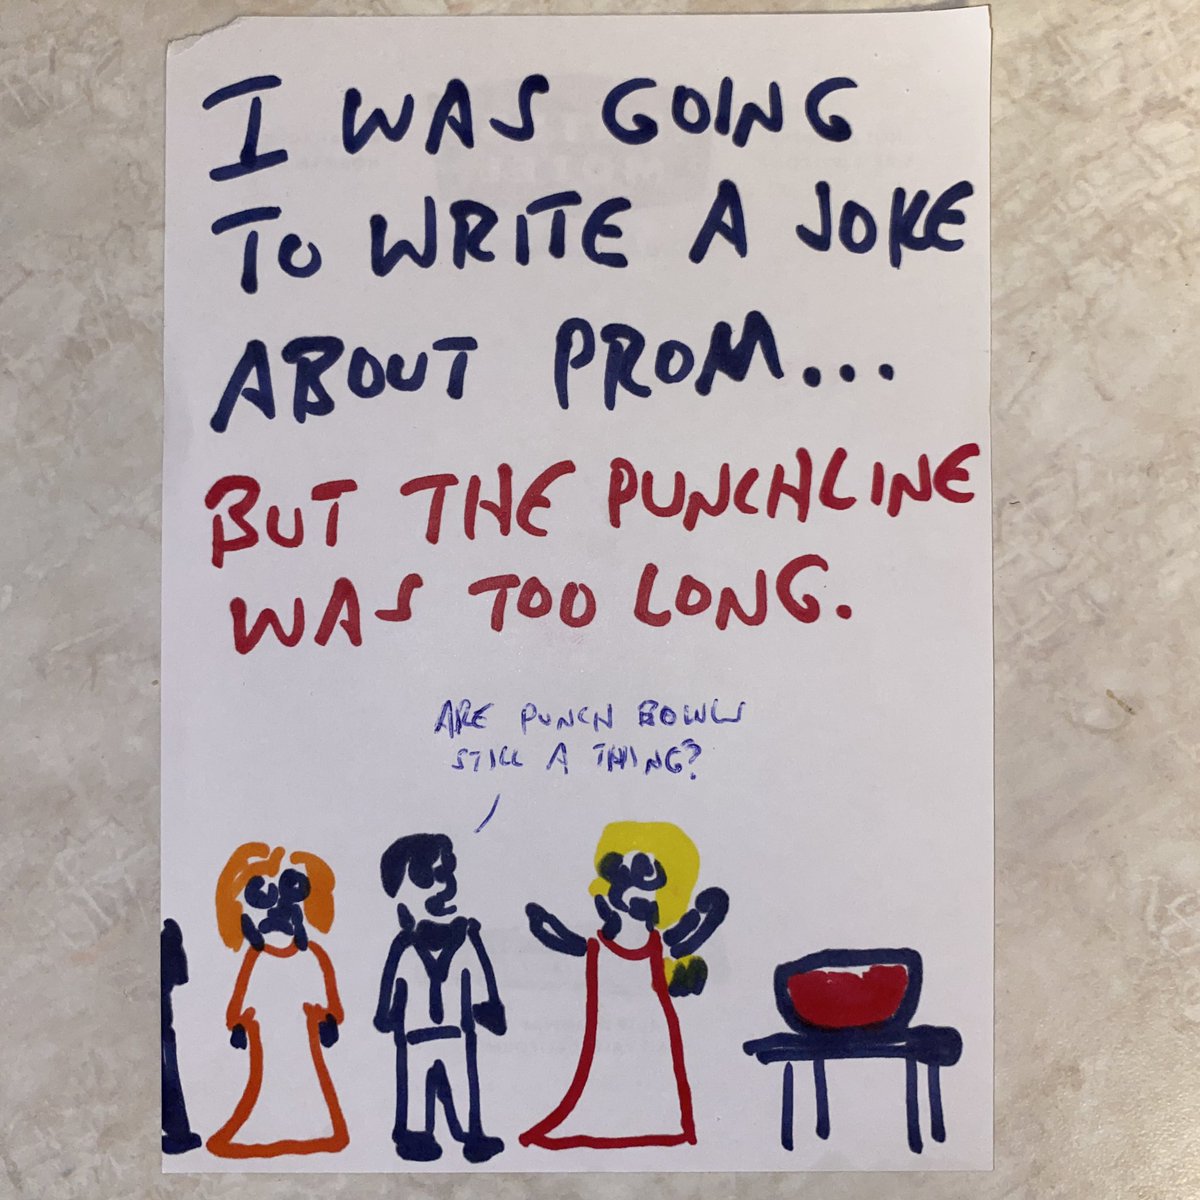 I WAS GOING
TO WRITE A JOKE
ABOUT PROM...
BUT THE PUNCHLINE
WAS TOO LONG.
ARE PUNCH BOWLS
STILL A THING?